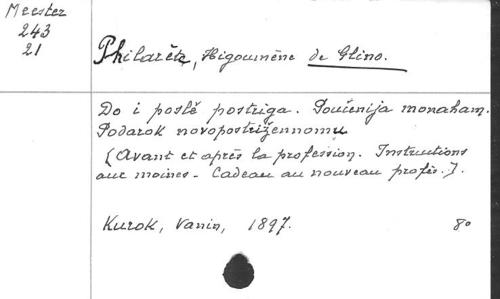 Meester
243
21
Philarète, Higoumène de Glino.
Do i poslě postriga. Poučenija monaham.
Podarok novopostrižennomu
(Avant et après la profession. Instructions
aux moines - Cadeau au nouveau profès.).
Kurok, Vanin, 1897. 8º